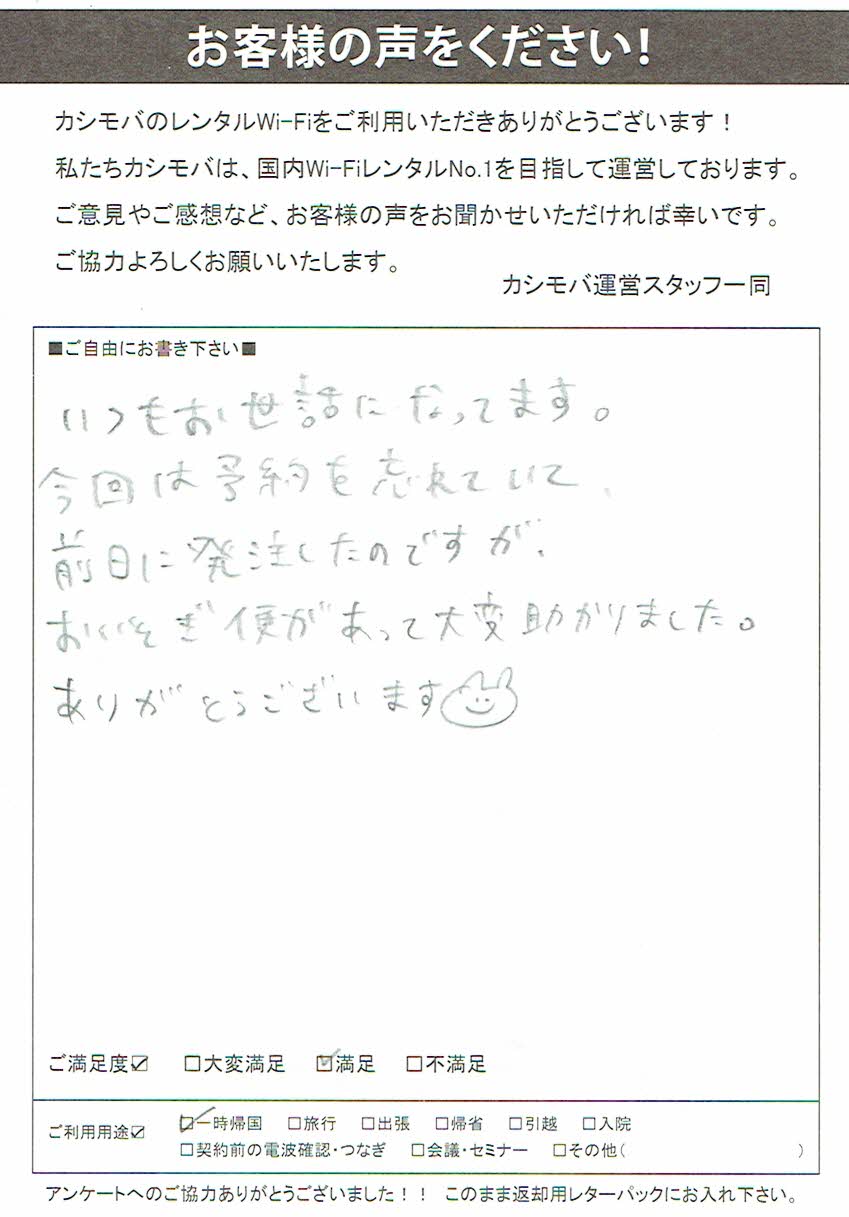 お客様の声をください!
カシモバのレンタルWi-Fiをご利用いただきありがとうございます！
私たちカシモバは、国内Wi-FiレンタルNo.1を目指して運営しております。
ご意見やご感想など、お客様の声をお聞かせいただければ幸いです。
ご協力よろしくお願いいたします。
カシモバ運営スタッフ一同
■ご自由にお書き下さい■
いつもお世話になってます。
今回は予約を忘れていて、
前日に発注したのですが、
おいそぎ便があって大変助かりました。
ありがとうございます
ご満足度☑ □大変満足 ☑満足 □不満足
ご利用用途☑ ☑一時帰国 □旅行 □出張 □帰省 □引越 □入院
□契約前の電波確認・つなぎ □会議・セミナー □その他( )
アンケートへのご協力ありがとうございました！！ このまま返却用レターパックにお入れ下さい。